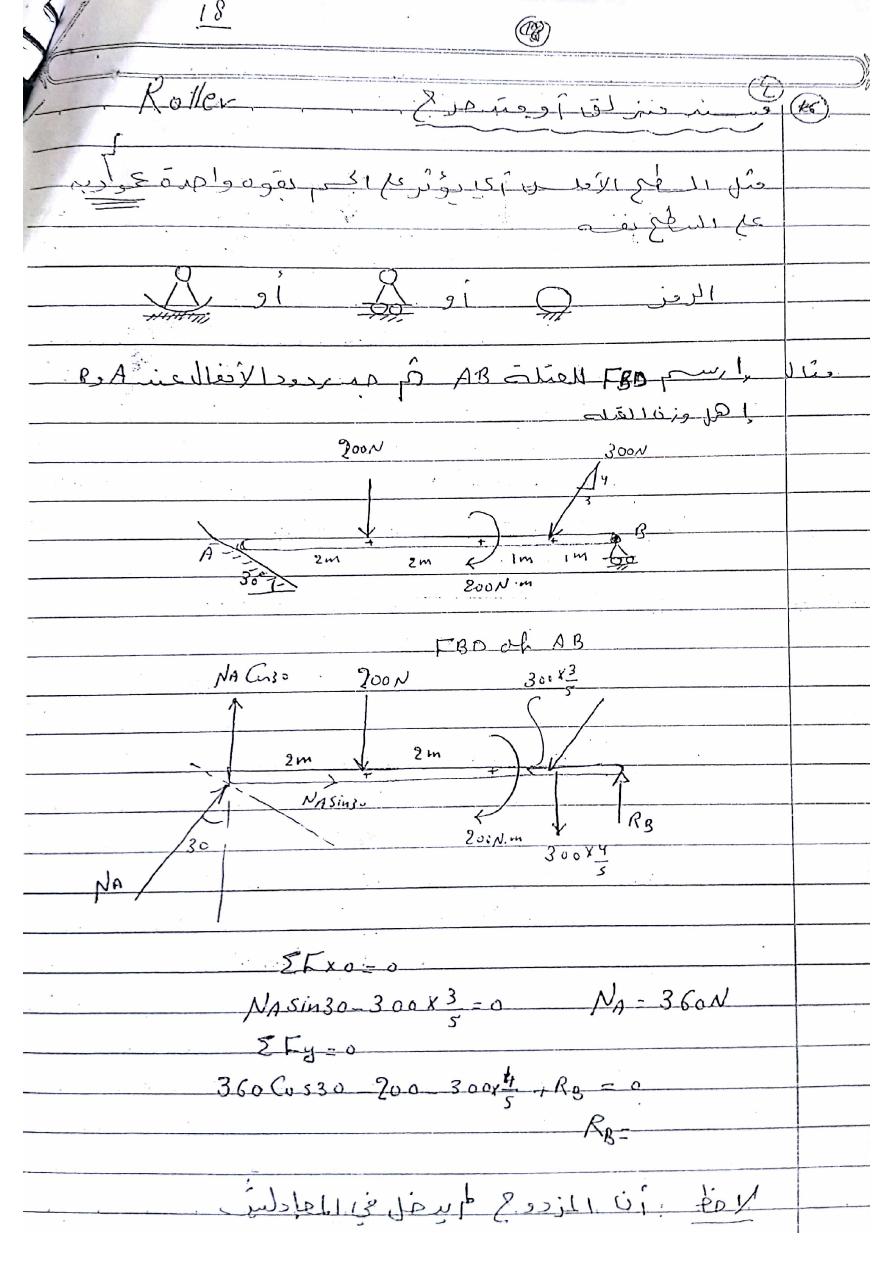 18
مسند منزلق أو متدحرج Roller
مثل السطح الأملس أي يؤثر على الجسم بقوه واحدة عموديه
على السطح نفسه
الرمز أو أو
مثال ارسم FBD للعتلة AB ثم جد ردود الأفعال عند A و B
إهمل وزن العتله
200N 300N
4
3
A B
2m 2m 1m 1m
30°
200N.m
FBD of AB
NA Cos30 200N 300×3/5
2m 2m
NA Sin30
30 200N.m RB
300×4/5
NA
ΣFx = 0
NA sin30 - 300 × 3/5 = 0 NA = 360N
ΣFy = 0
360 Cos30 - 200 - 300×4/5 + RB = 0
RB =
لاحظ : أن المزدوج لم يدخل في المعادلتين